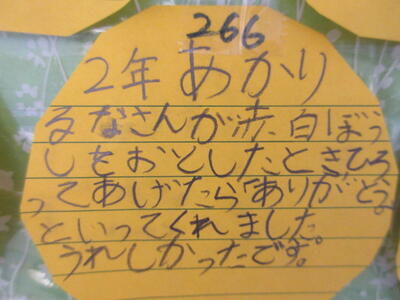 266
2年 あかり
るなさんが赤白ぼう
しをおとしたとき、ひろ
ってあげたら「ありがとう。」
といってくれました。
うれしかったです。